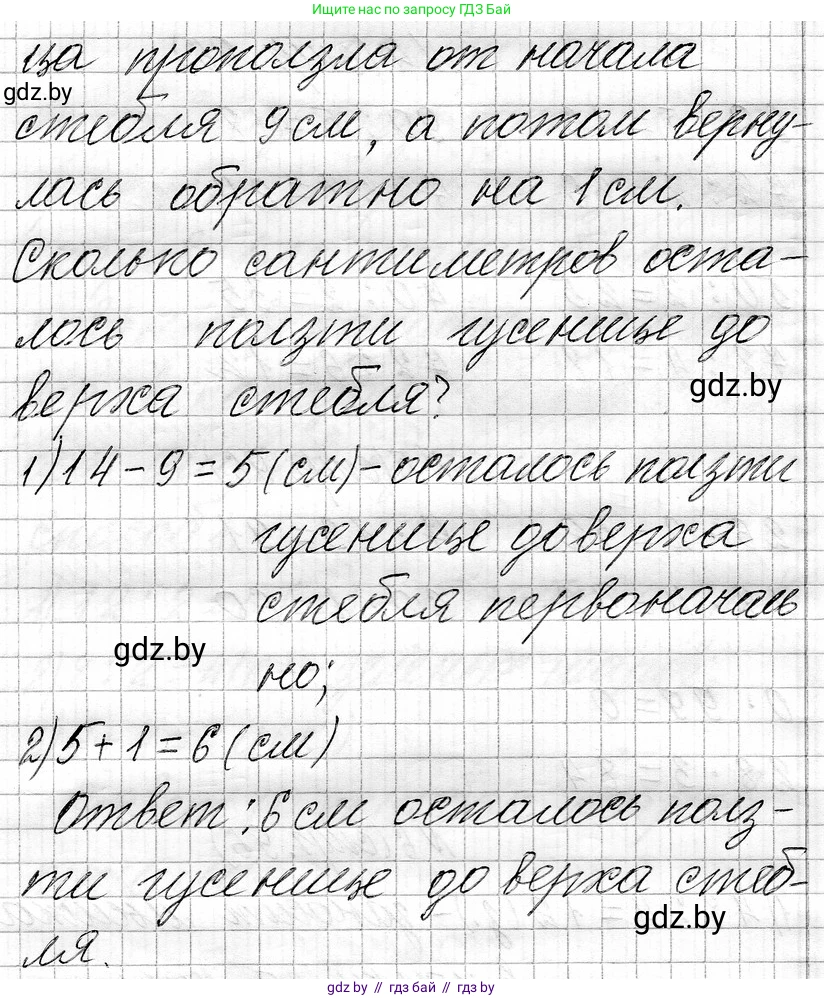 Ищите нас по запросу ГДЗ Бай
ца проползла от начала
gdz.by
стебля 9 см, а потом верну-
лась обратно на 1 см.
Сколько сантиметров оста-
лось ползти гусенице до
gdz.by
верха стебля?
1) 14 - 9 = 5 (см) - осталось ползти
гусенице до верха
стебля первоначаль
gdz.by
но;
2) 5 + 1 = 6 (см)
Ответ: 6 см осталось полз-
ти гусенице до верха стеб-
gdz.by
ля.
gdz.by // гдз бай // гдз by